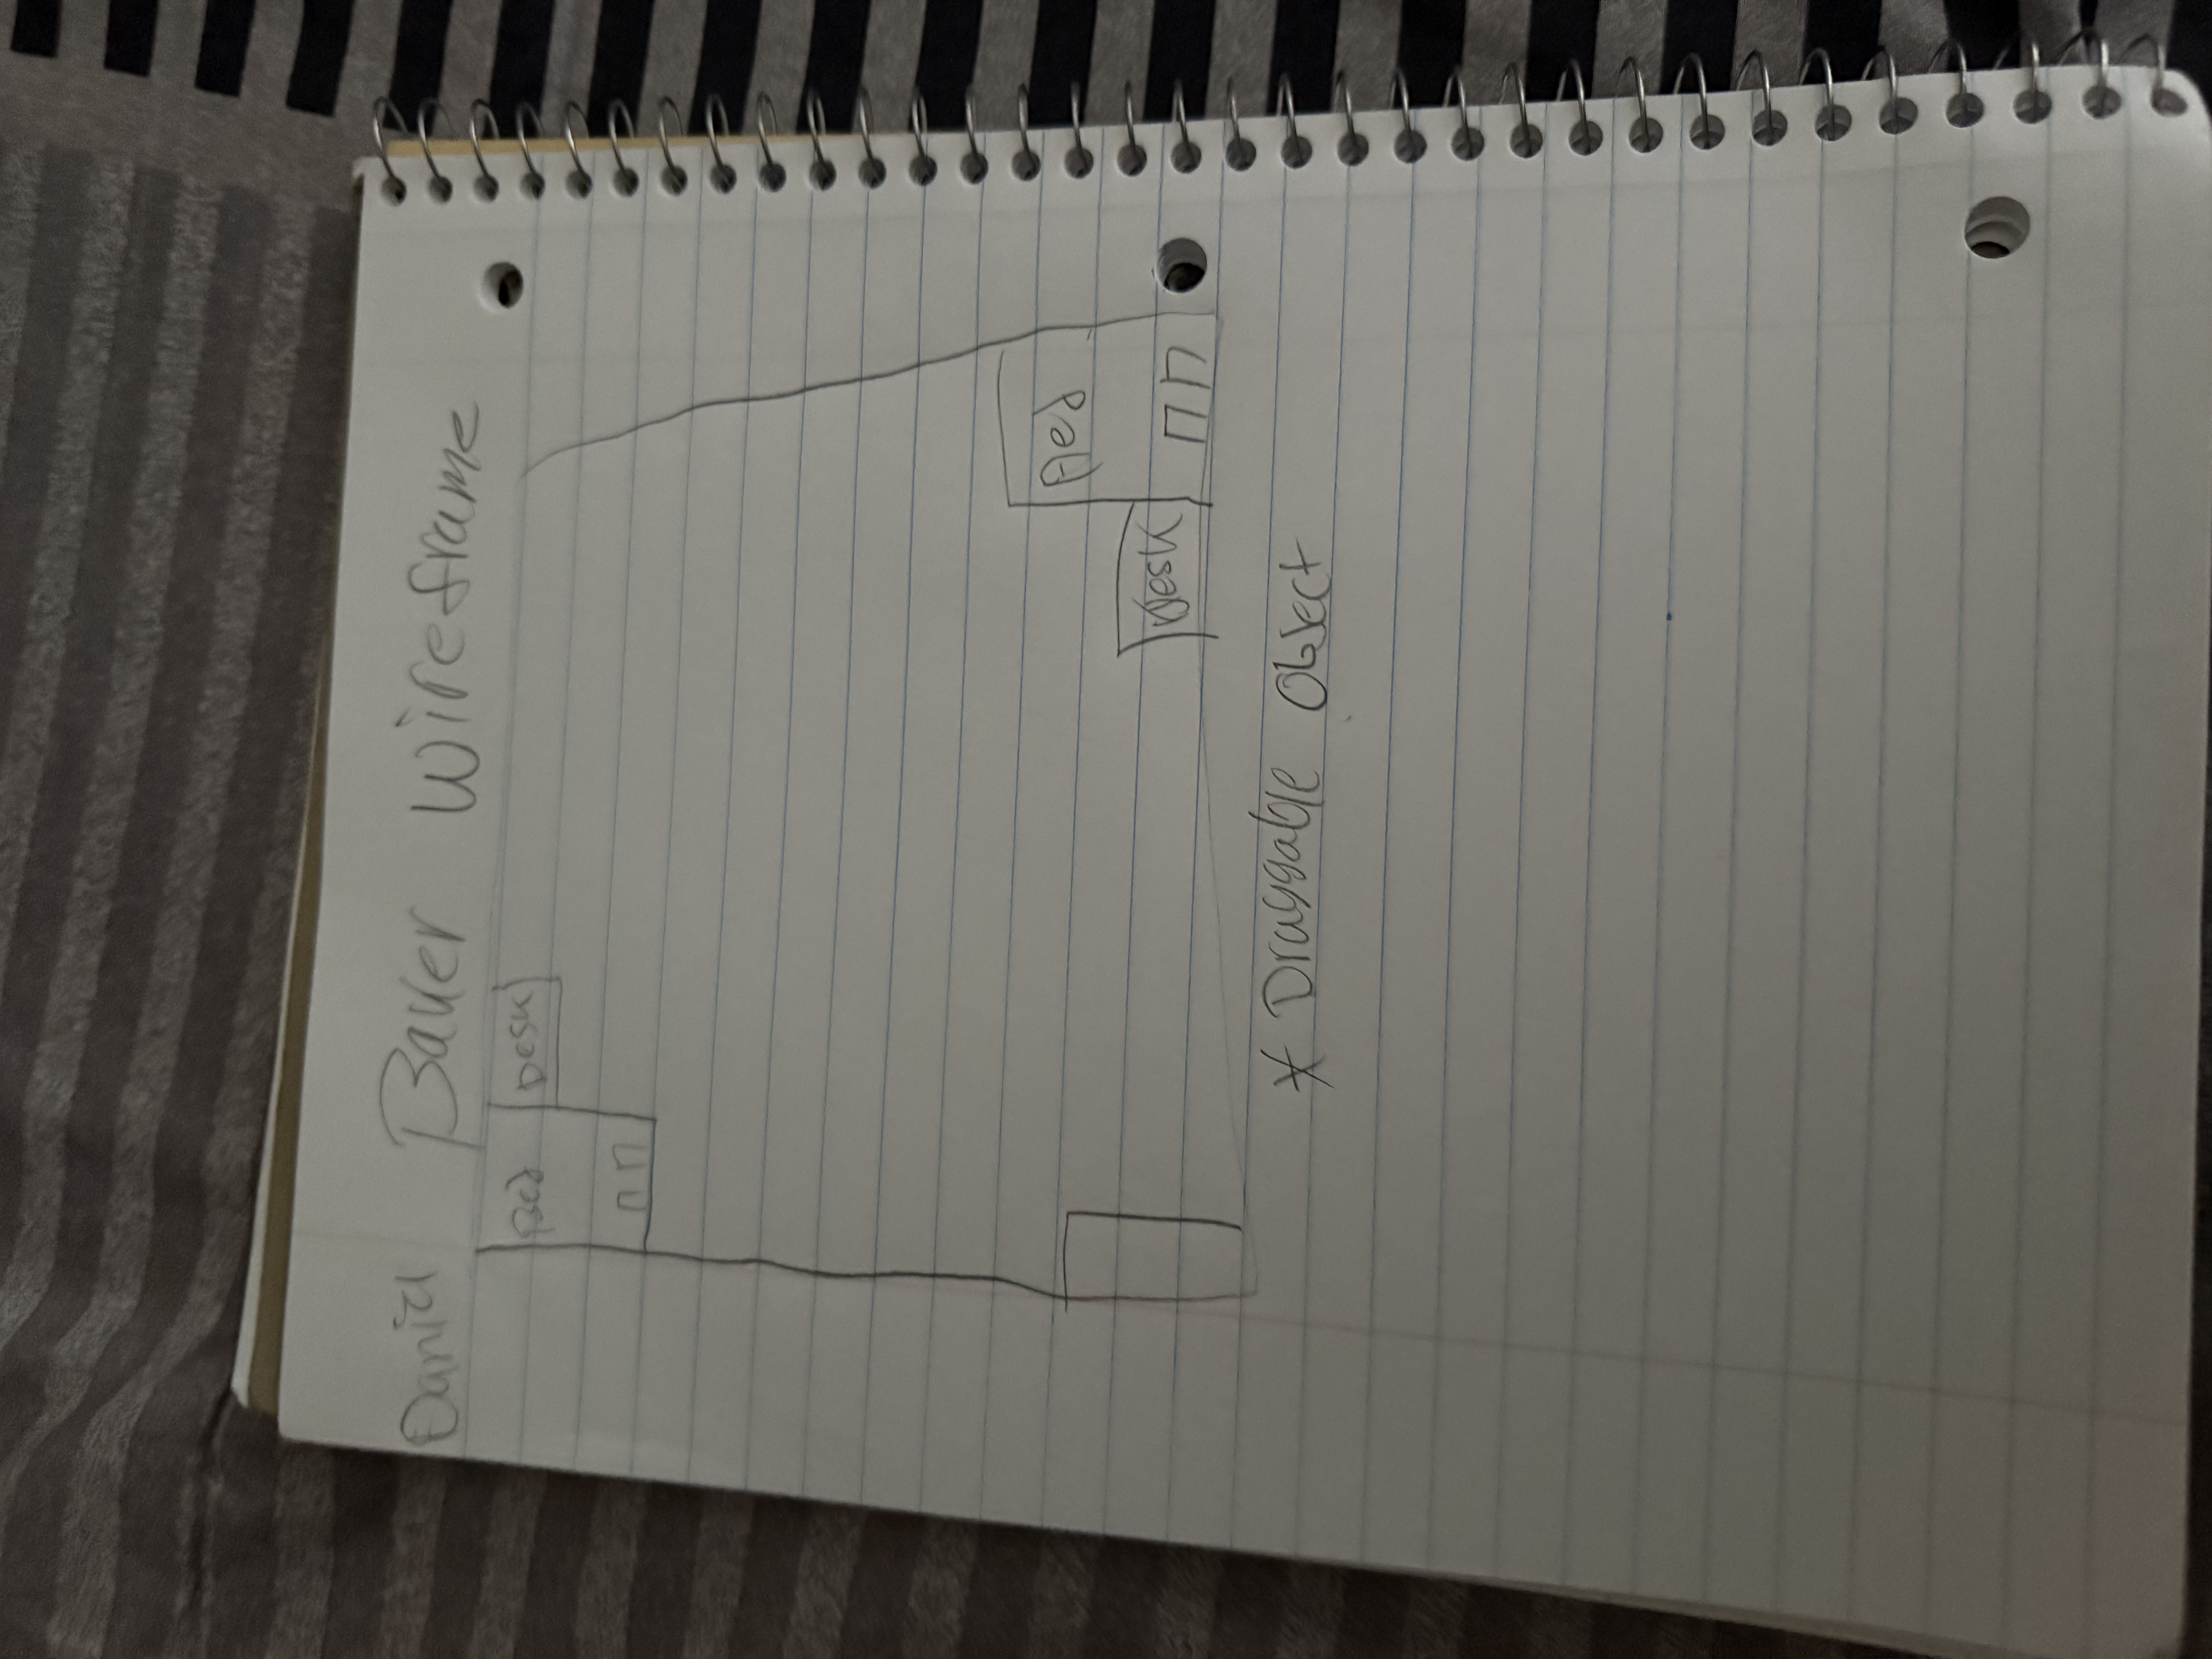 Daniel Bauer Wireframe
Bed Desk
Bed
Desk
* Draggable Object